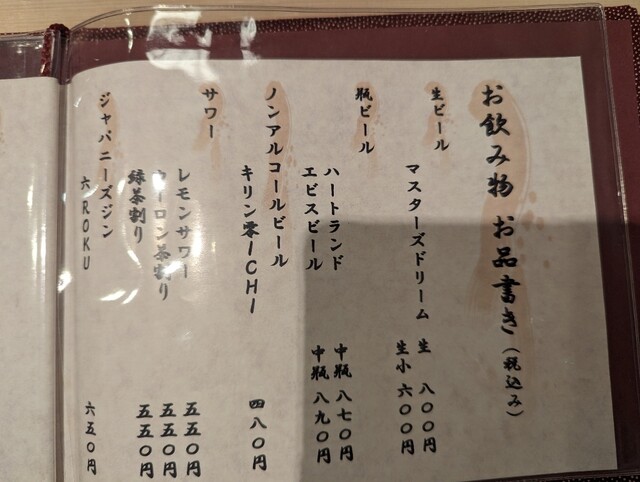 お飲み物 お品書き(税込み)
生ビール
マスターズドリーム 生 八〇〇円
生小 六〇〇円
瓶ビール
ハートランド 中瓶 八七〇円
エビスビール 中瓶 八九〇円
ノンアルコールビール
キリン零ICHI 四八〇円
サワー
レモンサワー 五五〇円
ウーロン茶割り 五五〇円
緑茶割り 五五〇円
ジャパニーズジン
六ROKU 六五〇円